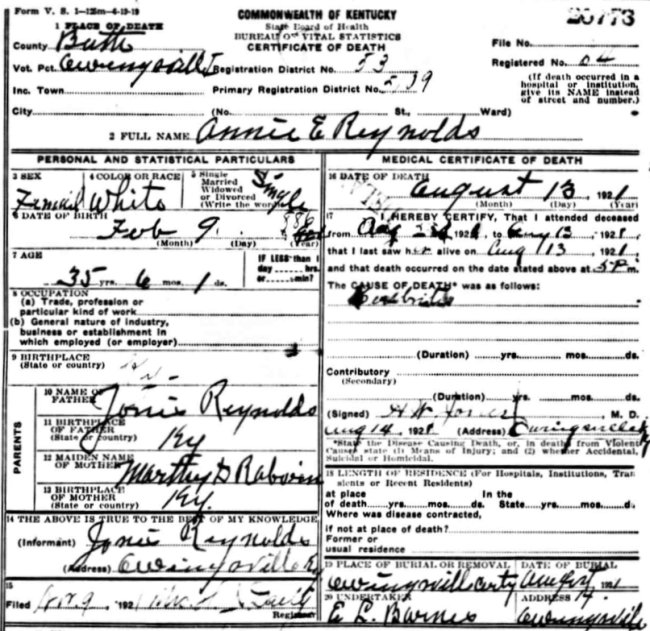 Form V. S. 1-125m-4-19-19
COMMONWEALTH OF KENTUCKY
State Board of Health
BUREAU OF VITAL STATISTICS
CERTIFICATE OF DEATH
1 PLACE OF DEATH
County
File No.
Vot. Pct. Owingsville Registration District No. 53 Registered No. 64
Inc. Town Primary Registration District No.
(If death occurred in a hospital or institution, give its NAME instead of street and number.)
City (No. St., Ward)
2 FULL NAME Annie E Reynolds
PERSONAL AND STATISTICAL PARTICULARS
3 SEX 4 COLOR OR RACE 5 Single Married Widowed or Divorced (Write the word)
Female White Single
6 DATE OF BIRTH
Feb 9
(Month) (Day) (Year)
7 AGE IF LESS than 1 day hrs. or min?
35 yrs. 6 mos. 1 ds.
8 OCCUPATION
(a) Trade, profession or particular kind of work
(b) General nature of industry, business or establishment in which employed (or employer)
9 BIRTHPLACE
(State or country)
PARENTS
10 NAME OF FATHER Jonie Reynolds
11 BIRTHPLACE OF FATHER (State or country) Ky
12 MAIDEN NAME OF MOTHER
13 BIRTHPLACE OF MOTHER (State or country) Ky.
14 THE ABOVE IS TRUE TO THE BEST OF MY KNOWLEDGE
(Informant) Jonie Reynolds
(Address) Owingsville Ky
15
Filed 192 Registrar
MEDICAL CERTIFICATE OF DEATH
16 DATE OF DEATH
August 13, 1921
(Month) (Day) (Year)
17 I HEREBY CERTIFY, That I attended deceased
from Aug to Aug 13, 1921
that I last saw her alive on Aug 13, 1921
and that death occurred on the date stated above at m.
The CAUSE OF DEATH* was as follows:
(Duration) yrs. mos. ds.
Contributory
(Secondary)
(Duration) yrs. mos. ds.
(Signed) H. W. Jones M. D.
Aug 14, 1921 (Address) Owingsville Ky
*State the Disease Causing Death, or, in deaths from Violent Causes state (1) Means of Injury; and (2) whether Accidental, Suicidal or Homicidal.
18 LENGTH OF RESIDENCE (For Hospitals, Institutions, Transients or Recent Residents)
at place of death yrs. mos. ds. In the State yrs. mos. ds.
Where was disease contracted,
if not at place of death?
Former or usual residence
19 PLACE OF BURIAL OR REMOVAL DATE OF BURIAL
20 UNDERTAKER ADDRESS
E L Barnes Owingsville